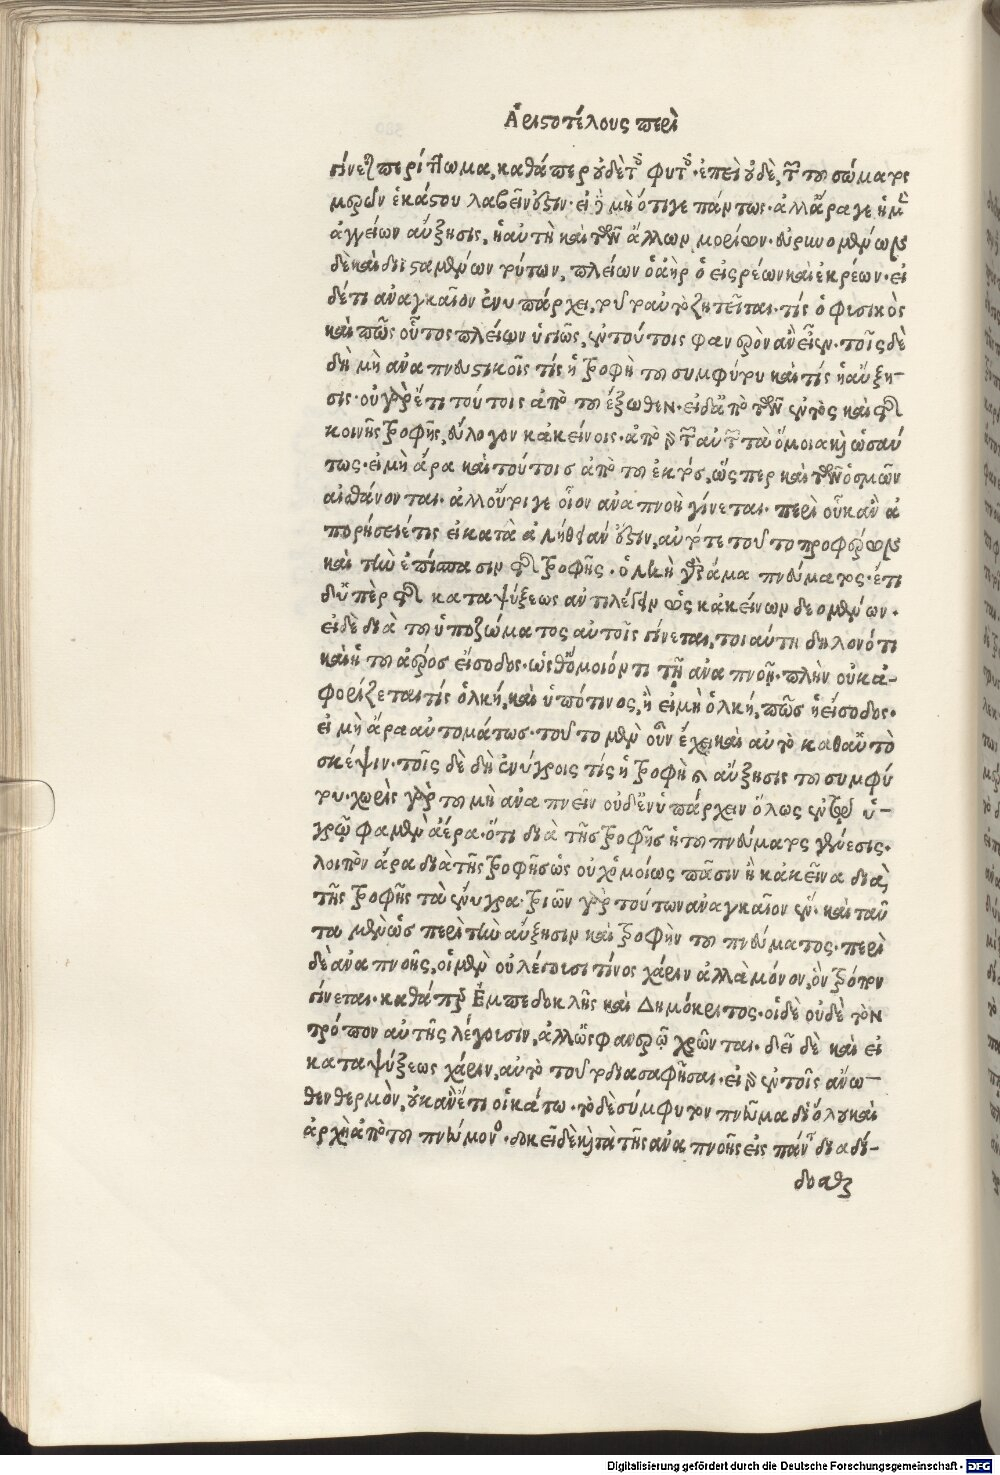 Ἀριστοτέλους περὶ
γίνεται περίττωμα, καθάπερ οὐδὲ τοῖς φυτοῖς. ἐπεὶ οὐδὲ, τοῦ σώματος
μορίων ἑκάστου λαβεῖν οὖσιν. εἰ δὲ μὴ ὅτι γε πάντως. ἀλλ' ἆρά γε ἡ μὲν
ἀγγείων αὔξησις, ἡ αὐτὴ καὶ τῶν ἄλλων μορίων. εὐρυνομένων
δὲ καὶ διϊσταμένων τούτων, πλείων ὁ ἀὴρ ὁ εἰσρέων καὶ ἐκρέων. εἰ
δέ τι ἀναγκαῖον ἐνυπάρχει, τοῦτ' αὐτὸ ζητεῖται. τίς ὁ φυσικὸς
καὶ πῶς οὗτος πλείων ὑγιῶς, ἐν τούτοις φανερὸν ἂν εἴη. τοῖς δὲ
δὴ μὴ ἀναπνευστικοῖς τίς ἡ τροφὴ τοῦ συμφύτου καὶ τίς ἡ αὔξη-
σις. οὐ γὰρ ἔτι τούτοις ἀπὸ τοῦ ἔξωθεν. εἰ δ' ἀπὸ τῶν ἐντὸς καὶ τῆς
κοινῆς τροφῆς, εὔλογον κἀκείνοις. ἀπὸ γὰρ τοῦ αὐτοῦ τὰ ὅμοια καὶ ὡσαύ
τως. εἰ μὴ ἄρα καὶ τούτοις ἀπὸ τοῦ ἐκτός, ὥσπερ καὶ τῶν ὀσμῶν
αἰσθάνονται. ἀλλ' οὔτι γε οἷον ἀναπνοὴ γίνεται. περὶ οὗ κἂν ἀ
πορήσειέ τις εἰ κατὰ ἀλήθειαν οὖσιν, αὐτό τε τοῦτο προφέροντες
καὶ τὴν ἐπίσπασιν τῆς τροφῆς. ὁλκὴ γὰρ ἅμα πνεύματος. ἔτι
δ' ὑπὲρ τῆς καταψύξεως ἀντιλέγειν ὡς κἀκείνων δεομένων.
εἰ δὲ διὰ τοῦ ὑποζώματος αὐτοῖς γίνεται, τοιαύτη δηλονότι
καὶ ἡ τοῦ ἀέρος εἴσοδος. ὥσθ' ὅμοιόν τι τῇ ἀναπνοῇ. πλὴν οὐκ ἀ-
φορίζεται τίς ὁλκή, καὶ ὑπό τινος, ἢ εἰ μὴ ὁλκή, πῶς ἡ εἴσοδος.
εἰ μὴ ἄρα αὐτομάτως. τοῦτο μὲν οὖν ἔχει καὶ αὐτὸ καθ' αὑτὸ
σκέψιν. τοῖς δὲ δὴ ἐνύγροις τίς ἡ τροφὴ καὶ αὔξησις τοῦ συμφύ
του. χωρὶς γὰρ τοῦ μὴ ἀναπνεῖν οὐδ' ἐνυπάρχειν ὅλως ἐν τῷ ὑ-
γρῷ φαμὲν ἀέρα. ὅτι διὰ τῆς τροφῆς ἡ τοῦ πνεύματος γένεσις.
λοιπὸν ἄρα διὰ τῆς τροφῆς ὡς οὐχ ὁμοίως πᾶσιν ἢ κἀκεῖνα διὰ
τῆς τροφῆς τὰ ἔνυγρα. τριῶν γὰρ τούτων ἀναγκαῖον ἕν. καὶ ταῦ
τα μὲν ὡς περὶ τὴν αὔξησιν καὶ τροφὴν τοῦ πνεύματος. περὶ
δὲ ἀναπνοῆς, οἱ μὲν οὐ λέγουσι τίνος χάριν ἀλλὰ μόνον, ὃν τρόπον
γίνεται. καθάπερ Ἐμπεδοκλῆς καὶ Δημόκριτος. οἱ δὲ οὐδὲ τὸν
τρόπον αὐτῆς λέγουσιν, ἀλλ' ὡς φανερῷ χρῶνται. δεῖ δὲ καὶ εἰ
καταψύξεως χάριν, αὐτὸ τοῦτο διασαφῆσαι. εἰ γὰρ ἐν τοῖς ἄνω-
θεν θερμὸν, οὐκ ἂν ἔτι οἱ κάτω. τὸ δὲ σύμφυτον πνεῦμα δι' ὅλου καὶ
ἀρχὴ ἀπὸ τοῦ πνεύμονος. δοκεῖ δὲ καὶ τὰ τῆς ἀναπνοῆς εἰς πάντα διαδί-
δοσθαι
Digitalisierung gefördert durch die Deutsche Forschungsgemeinschaft - DFG